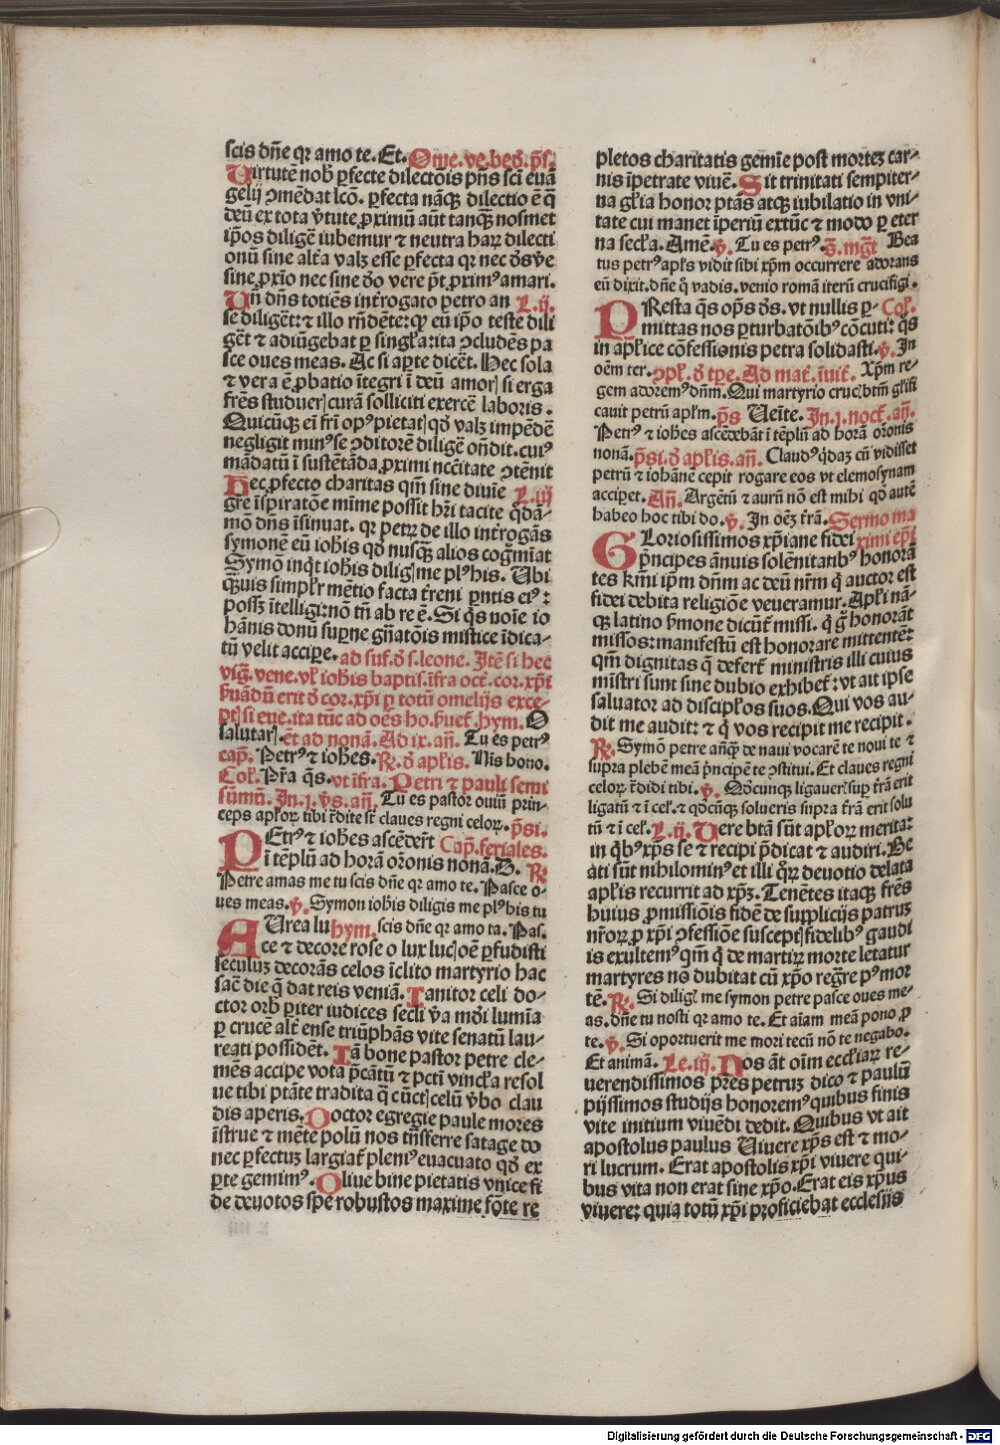 scis dñe qꝛ amo te. Et. Ome. ve. bed. p̄ſ.
Virtutē nob̾ ꝑfecte dilectōis pn̄s sc̄i euā
gelij ↄmēdat lc̄o. ꝑfecta nāqꝫ dilectio ē q̄
deū ex tota v̾tute ꝓximū aūt tanqꝫ nosmet
ip̄os diligē iubemur ⁊ neutra haꝝ dilecti
onū sine alt̾a valꝫ esse ꝑfecta qꝛ nec d̾s v̾e
sine ꝓxīo nec sine d̾o vere pt̄ ꝓximꝰ amari.
Vn̄ dn̄s totiēs int̾rogato petro an L. ij.
se diligēt: ⁊ illo rn̄dēte: ꝙ eū ip̄o teste dili
gēt ⁊ adiūgebat ꝑ singl̾a: ita ↄcludēs pa
sce oues meas. Ac si aꝑte dicēt. Hec sola
⁊ vera ē ꝓbatio īntegri ī deū amorꝭ si erga
fr̄es studuerꝭ curā solliciti exercē laboris.
Quicūqꝫ eī fr̄i opꝰ pietatꝭ qd̾ valꝫ impēdē
negligit minꝰ se ↄditorē diligē on̄dit. cuiꝰ
mādatū ī sustētāda ꝓximi nc̄citate ↄtēnit
Hec ꝑfecto charitas qm̄ sine diuīe L. iij
gr̄e īspiratōe mīme possit hr̄i tacite qd̾ā-
mō dn̄s īsinuat. qꝛ petrꝫ de illo int̾rogās
symonē eū ioh̾is qd̾ nusqꝫ̄ alios cog̾mīat
Symō inq̾t ioh̾is diligꝭ me plꝰ his. Ubi
qꝫ̄uis simpl̾r mētio facta t̾reni ꝑntis eiꝰ:
possꝫ ītelligi: nō tn̄ ab re ē. Si q̾s noīe io
hānis donū suꝑne gn̄atōis mistice īdica-
tū velit accipe. ad suf. d̾ s. leone. Itē si hec
vig̾. vene. vl̾ ioh̾is baptis. īfra oct̾. cor. xp̄i
p̾uādū erit d̾ cor. xp̄i ꝑ totū omelijs exce-
ptꝭ si eue. ita tūc ad oēs ho. p̾uet̾. hym. O
salutarꝭ. et ad nonā. Ad ix. an̄. Tu es petrꝰ
cap̄. Petrꝰ ⁊ ioh̾es. ℟. d̾ apl̾is. Nis bono.
Col̾. Pr̄a q̄s. vt īfra. Petri ⁊ pauli semi
sūmū. In. j. v̾s. an̄. Tu es pastor ouiū prin-
ceps apl̾oꝝ tibi t̾dite st̄ claues regni celoꝝ. p̄si.
PEtrꝰ ⁊ ioh̾es ascēder̄t Cap̄. feriales.
ī tēplū ad horā or̄onis nonā. B. ℟
Petre amas me tu scis dñe qꝛ amo te. Pasce o-
ues meas. ℣. Symon ioh̾is diligis me plꝰ his tu
AUrea lu hym. scis dñe qꝛ amo ta. Pas.
ce ⁊ decore rose o lux lucꝭ oē ꝑfudisti
seculuꝫ decorās celos īclito martyrio hac
sac̄ die q̄ dat reis veniā. Ianitor celi do-
ctor orb̾ ꝑiter iudices secl̾i v̾a mūdi lumīa
ꝑ crucē alt̾ ense triūphās vite senatū lau-
reati possidēt. Iā bone pastor petre cle-
mēs accipe vota p̄cātū ⁊ pctī vincl̾a resol
ue tibi ptāte tradita q̄ cūctꝭ celū v̾bo clau
dis aperis. Doctor egregie paule mores
īstrue ⁊ mēte polū nos tn̄sferre satage do
nec ꝑfectuꝫ largiat̾ pleniꝰ euacuato qd̾ ex
ꝑte gemimꝰ. Oliue bine pietatis vnice fi
de deuotos spē robustos maxime fōte re
pletos charitatis gemīe post mortez car-
nis īpetrate viuē. Sit trinitati sempiter-
na gl̾ia honor ptās atqꝫ iubilatio in vni-
tate cui manet īperiū extūc ⁊ modo ꝑ eter
na secl̾a. Amē. ℣. Tu es petrꝰ. S̄. mg̾t Bea
tus petrꝰ apl̾s vidit sibi xp̄m occurrere adorans
eū dixit. dñe q̾ vadis. venio romā iterū crucifigi.
PResta q̄s op̄s d̾s. vt nullis ꝑ- Col̾.
mittas nos ꝑturbatōib̾ cōcuti: q̾s
in apl̾ice cōfessionis petra solidasti. ℣. In
oēm ter. ↄpl̾. d̾ tꝑe. Ad mat̾. īuit̾. Xp̄m re-
gem adoremꝰ dn̄m. Qui martyrio cruc̄ btm̄ gl̾ifi
cauit petrū apl̾m. p̄s Ueīte. In. j. noct̾. an̄.
Petrꝰ ⁊ ioh̾es ascēdebāt ī tēplū ad horā or̄onis
nonā. p̄si. d̾ apl̾is. an̄. Claudꝰ q̾daꝫ cū vidisset
petrū ⁊ iohānē cepit rogare eos vt elemosynam
acciꝑet. An̄. Argētū ⁊ aurū nō est mihi qd̾ autē
habeo hoc tibi do. ℣. In oēꝫ t̾rā. Sermo ma
GLoriosissimos xp̄iane fidei ximi ep̄i
p̾ncipes ānuis solēnitatibꝰ honorā
tes kr̄mi ip̄m dn̄m ac deū nr̄m q̾ auctor est
fidei debita religiōe veueramur. Apl̾i nā-
qꝫ latino p̾mone dicūt̾ missi. q̾ g̾ honorāt
missos: manifestū est honorare mittentē:
qm̄ dignitas q̄ defert̾ ministris illi cuius
mīstri sunt sine dubio exhibet̾: vt ait ipse
saluator ad discipl̾os suos. Qui vos au-
dit me audit: ⁊ q̾ vos recipit me recipit.
℟. Symō petre an̄qꝫ de naui vocarē te noui te ⁊
supra plebē meā p̾ncipē te ↄstitui. Et claues regni
celoꝝ t̾didi tibi. ℣. Qd̾cunqꝫ ligauerꝭ suꝑ t̾rā erit
ligatū ⁊ ī cel̾. ⁊ qd̾cūqꝫ solueris supra t̾rā erit solu
tū ⁊ ī cel̾. L. ij. Vere btā sūt apl̾oꝝ merita:
in q̾bꝰ xp̄s se ⁊ recipi p̄dicat ⁊ audiri. Be
ati sūt nihilominꝰ et illi q̾ꝝ deuotio delata
apl̾is recurrit ad xp̄ꝫ. Tenētes itaqꝫ fr̄es
huius ꝓmissiōis fidē de supplicijs patruꝫ
nr̄oꝝ ꝓ xp̄i ↄfessiōe susceptꝭ fidelibꝰ gaudi
is exultemꝰ qm̄ q̾ de martiꝝ morte letatur
martyres nō dubitat cū xp̄o regr̄e pꝰ mor
tē. ℟. Si diligꝭ me symon petre pasce oues me-
as. dñe tu nosti qꝛ amo te. Et aīam meā pono ꝓ
te. ℣. Si oportuerit me mori tecū nō te negabo.
Et animā. Le. iij. Nos āt oīm eccl̾iaꝝ re-
uerendissimos pr̄es petruꝫ dico ⁊ paulū
pijssimos studijs honoremꝰ quibus finis
vite initium viuēdi dedit. Quibus vt ait
apostolus paulus Uiuere xp̄s est ⁊ mo-
ri lucrum. Erat apostolis xp̄i viuere qui-
bus vita non erat sine xp̄o. Erat eis xp̄us
viuere: quia totū xp̄i proficiebat ecclesijs
Digitalisierung gefördert durch die Deutsche Forschungsgemeinschaft - DFG